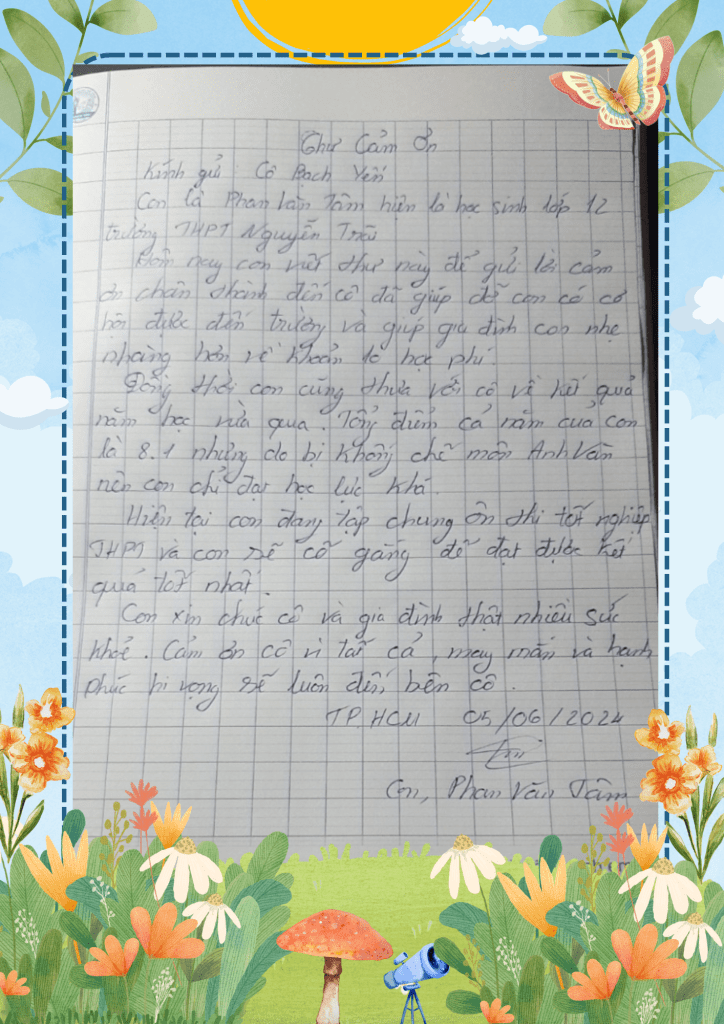 Thư Cảm Ơn
Kính gửi : Cô Bạch Yến
Con là Phan Văn Tâm hiện là học sinh lớp 12
trường THPT Nguyễn Trãi
Hôm nay con viết thư này để gửi lời cảm
ơn chân thành đến cô đã giúp đỡ con có cơ
hội được đến trường và giúp gia đình con nhẹ
nhàng hơn về khoản lo học phí.
Đồng thời con cũng thưa với cô về kết quả
năm học vừa qua. Tổng điểm cả năm của con
là 8.1 nhưng do bị khống chế môn Anh Văn
nên con chỉ đạt học lực khá.
Hiện tại con đang tập chung ôn thi tốt nghiệp
THPT và con sẽ cố gắng để đạt được kết
quả tốt nhất.
Con xin chúc cô và gia đình thật nhiều sức
khoẻ. Cảm ơn cô vì tất cả, may mắn và hạnh
phúc hi vọng sẽ luôn đến bên cô.
TP.HCM 05/06/2024
Con, Phan Văn Tâm